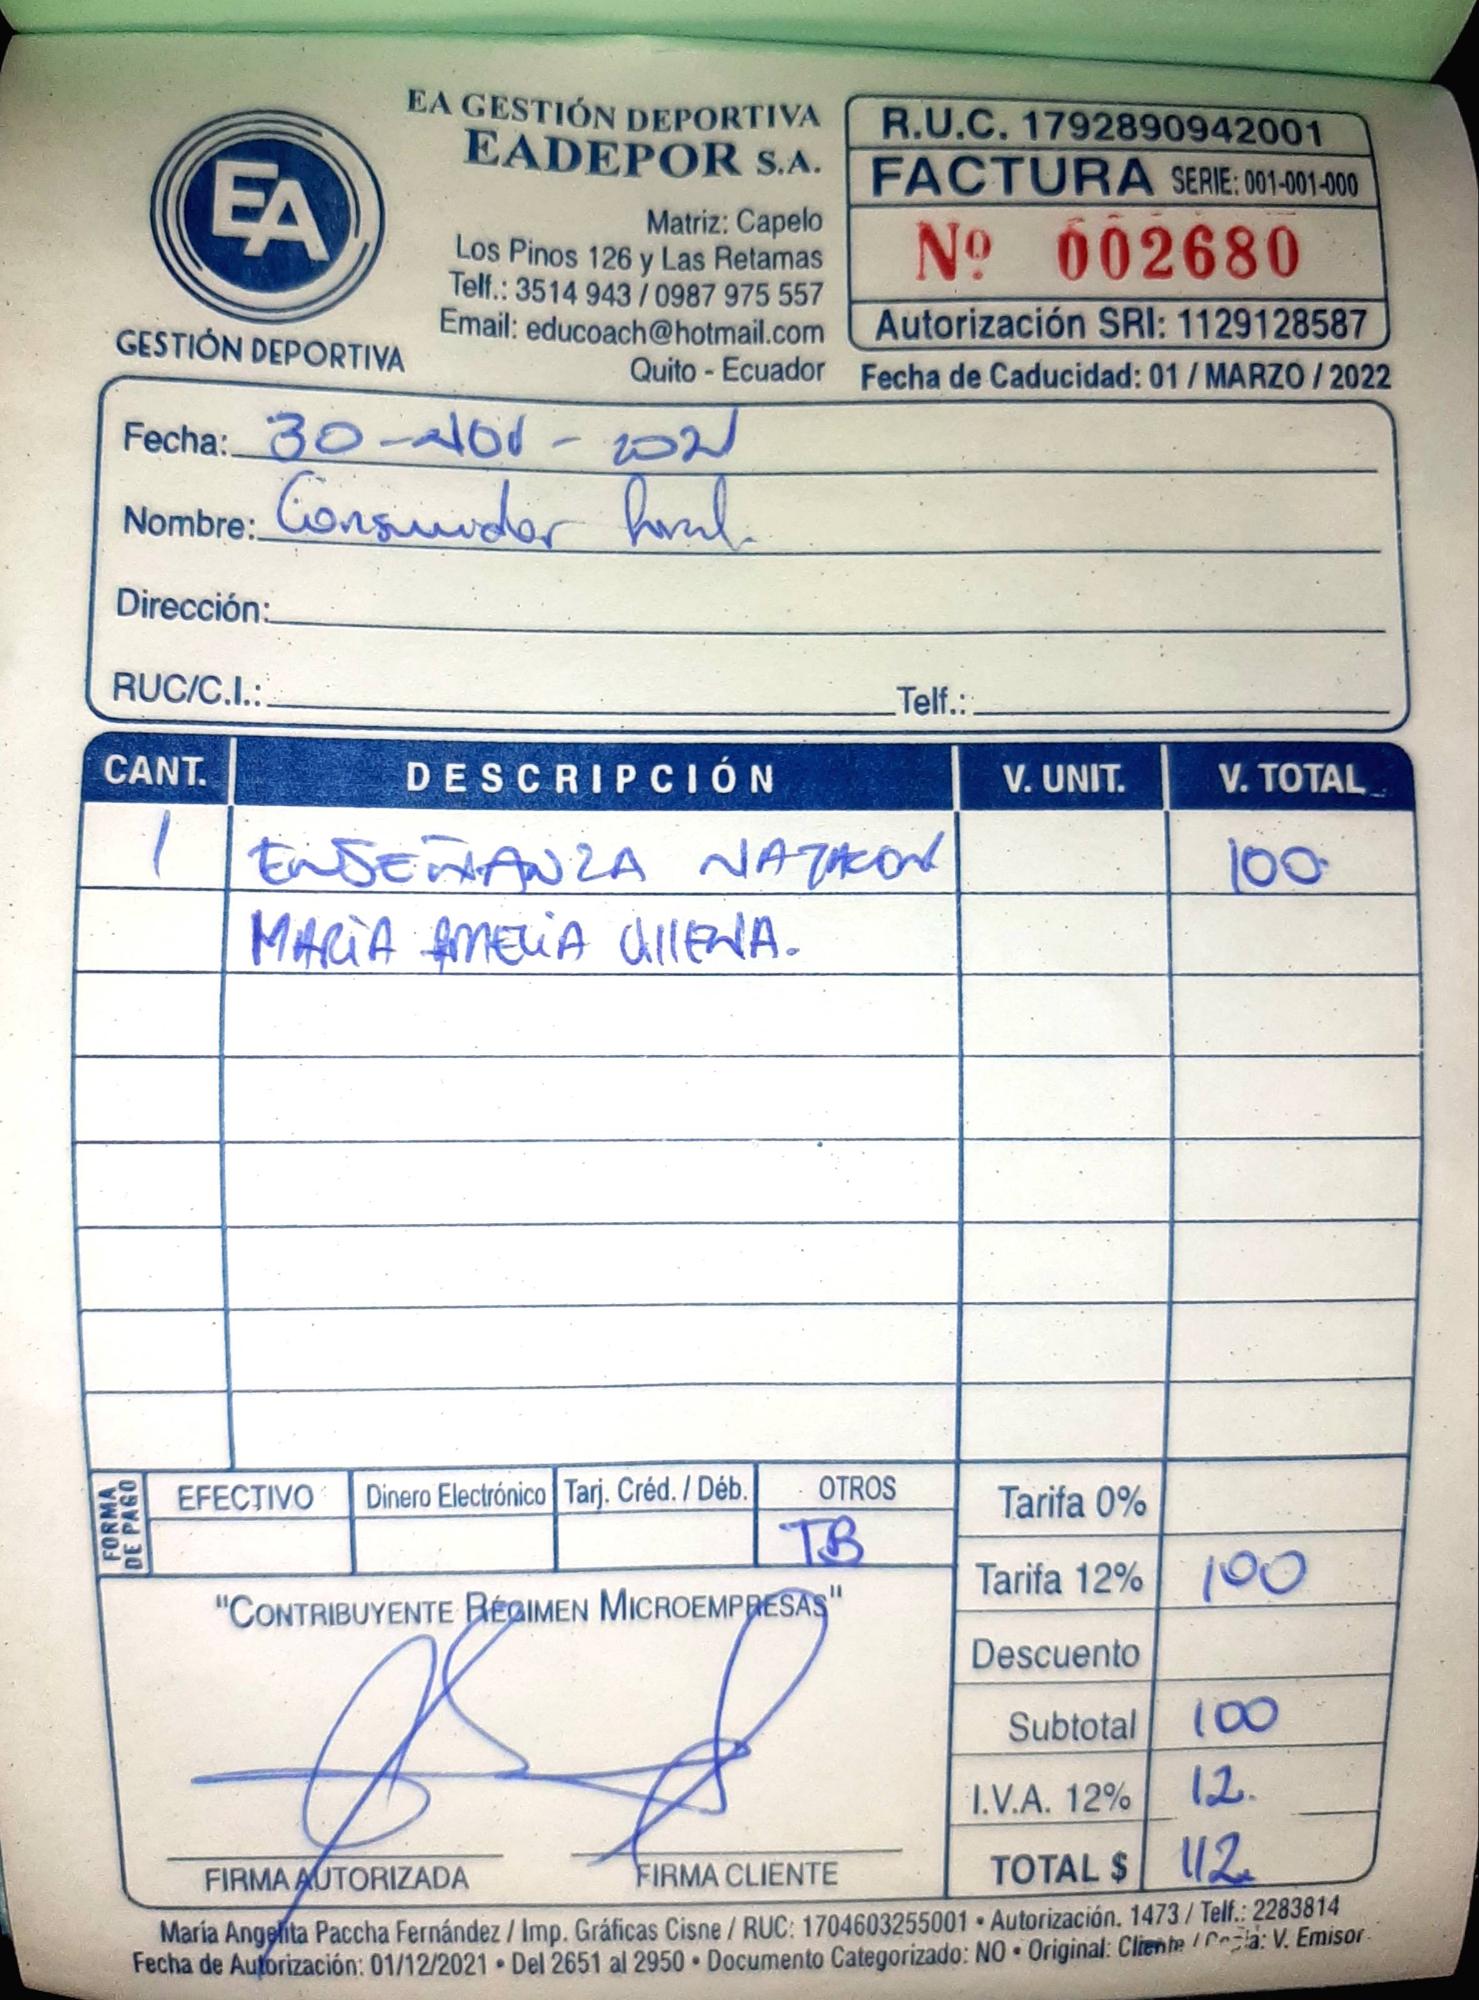 EA
GESTIÓN DEPORTIVA
EA GESTIÓN DEPORTIVA
EADEPOR S.A.
Matriz: Capelo
Los Pinos 126 y Las Retamas
Telf.: 3514 943 / 0987 975 557
Email: educoach@hotmail.com
Quito - Ecuador
R.U.C. 1792890942001
FACTURA SERIE: 001-001-000
Nº 002680
Autorización SRI: 1129128587
Fecha de Caducidad: 01 / MARZO / 2022
Fecha: 30-NOV-2021
Nombre: Consumidor final.
Dirección:
RUC/C.I.: Telf.:
CANT. DESCRIPCIÓN V. UNIT. V. TOTAL
1 ENSEÑANZA 100
MARÍA AMELIA
FORMA DE PAGO
EFECTIVO Dinero Electrónico Tarj. Créd. / Déb. OTROS
TB
Tarifa 0%
Tarifa 12% 100
Descuento
Subtotal 100
I.V.A. 12% 12.
TOTAL $ 112
"CONTRIBUYENTE RÉGIMEN MICROEMPRESAS"
FIRMA AUTORIZADA FIRMA CLIENTE
María Angelita Paccha Fernández / Imp. Gráficas Cisne / RUC: 1704603255001 • Autorización. 1473 / Telf.: 2283814
Fecha de Autorización: 01/12/2021 • Del 2651 al 2950 • Documento Categorizado: NO • Original: Cliente / Copia: V. Emisor